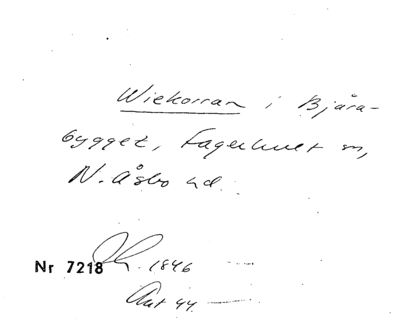 Wiekorran i Bjära-
bygget, Fagerhult sn,
N. Åsbo hd.
Nr 7218 1846
Ant 44.